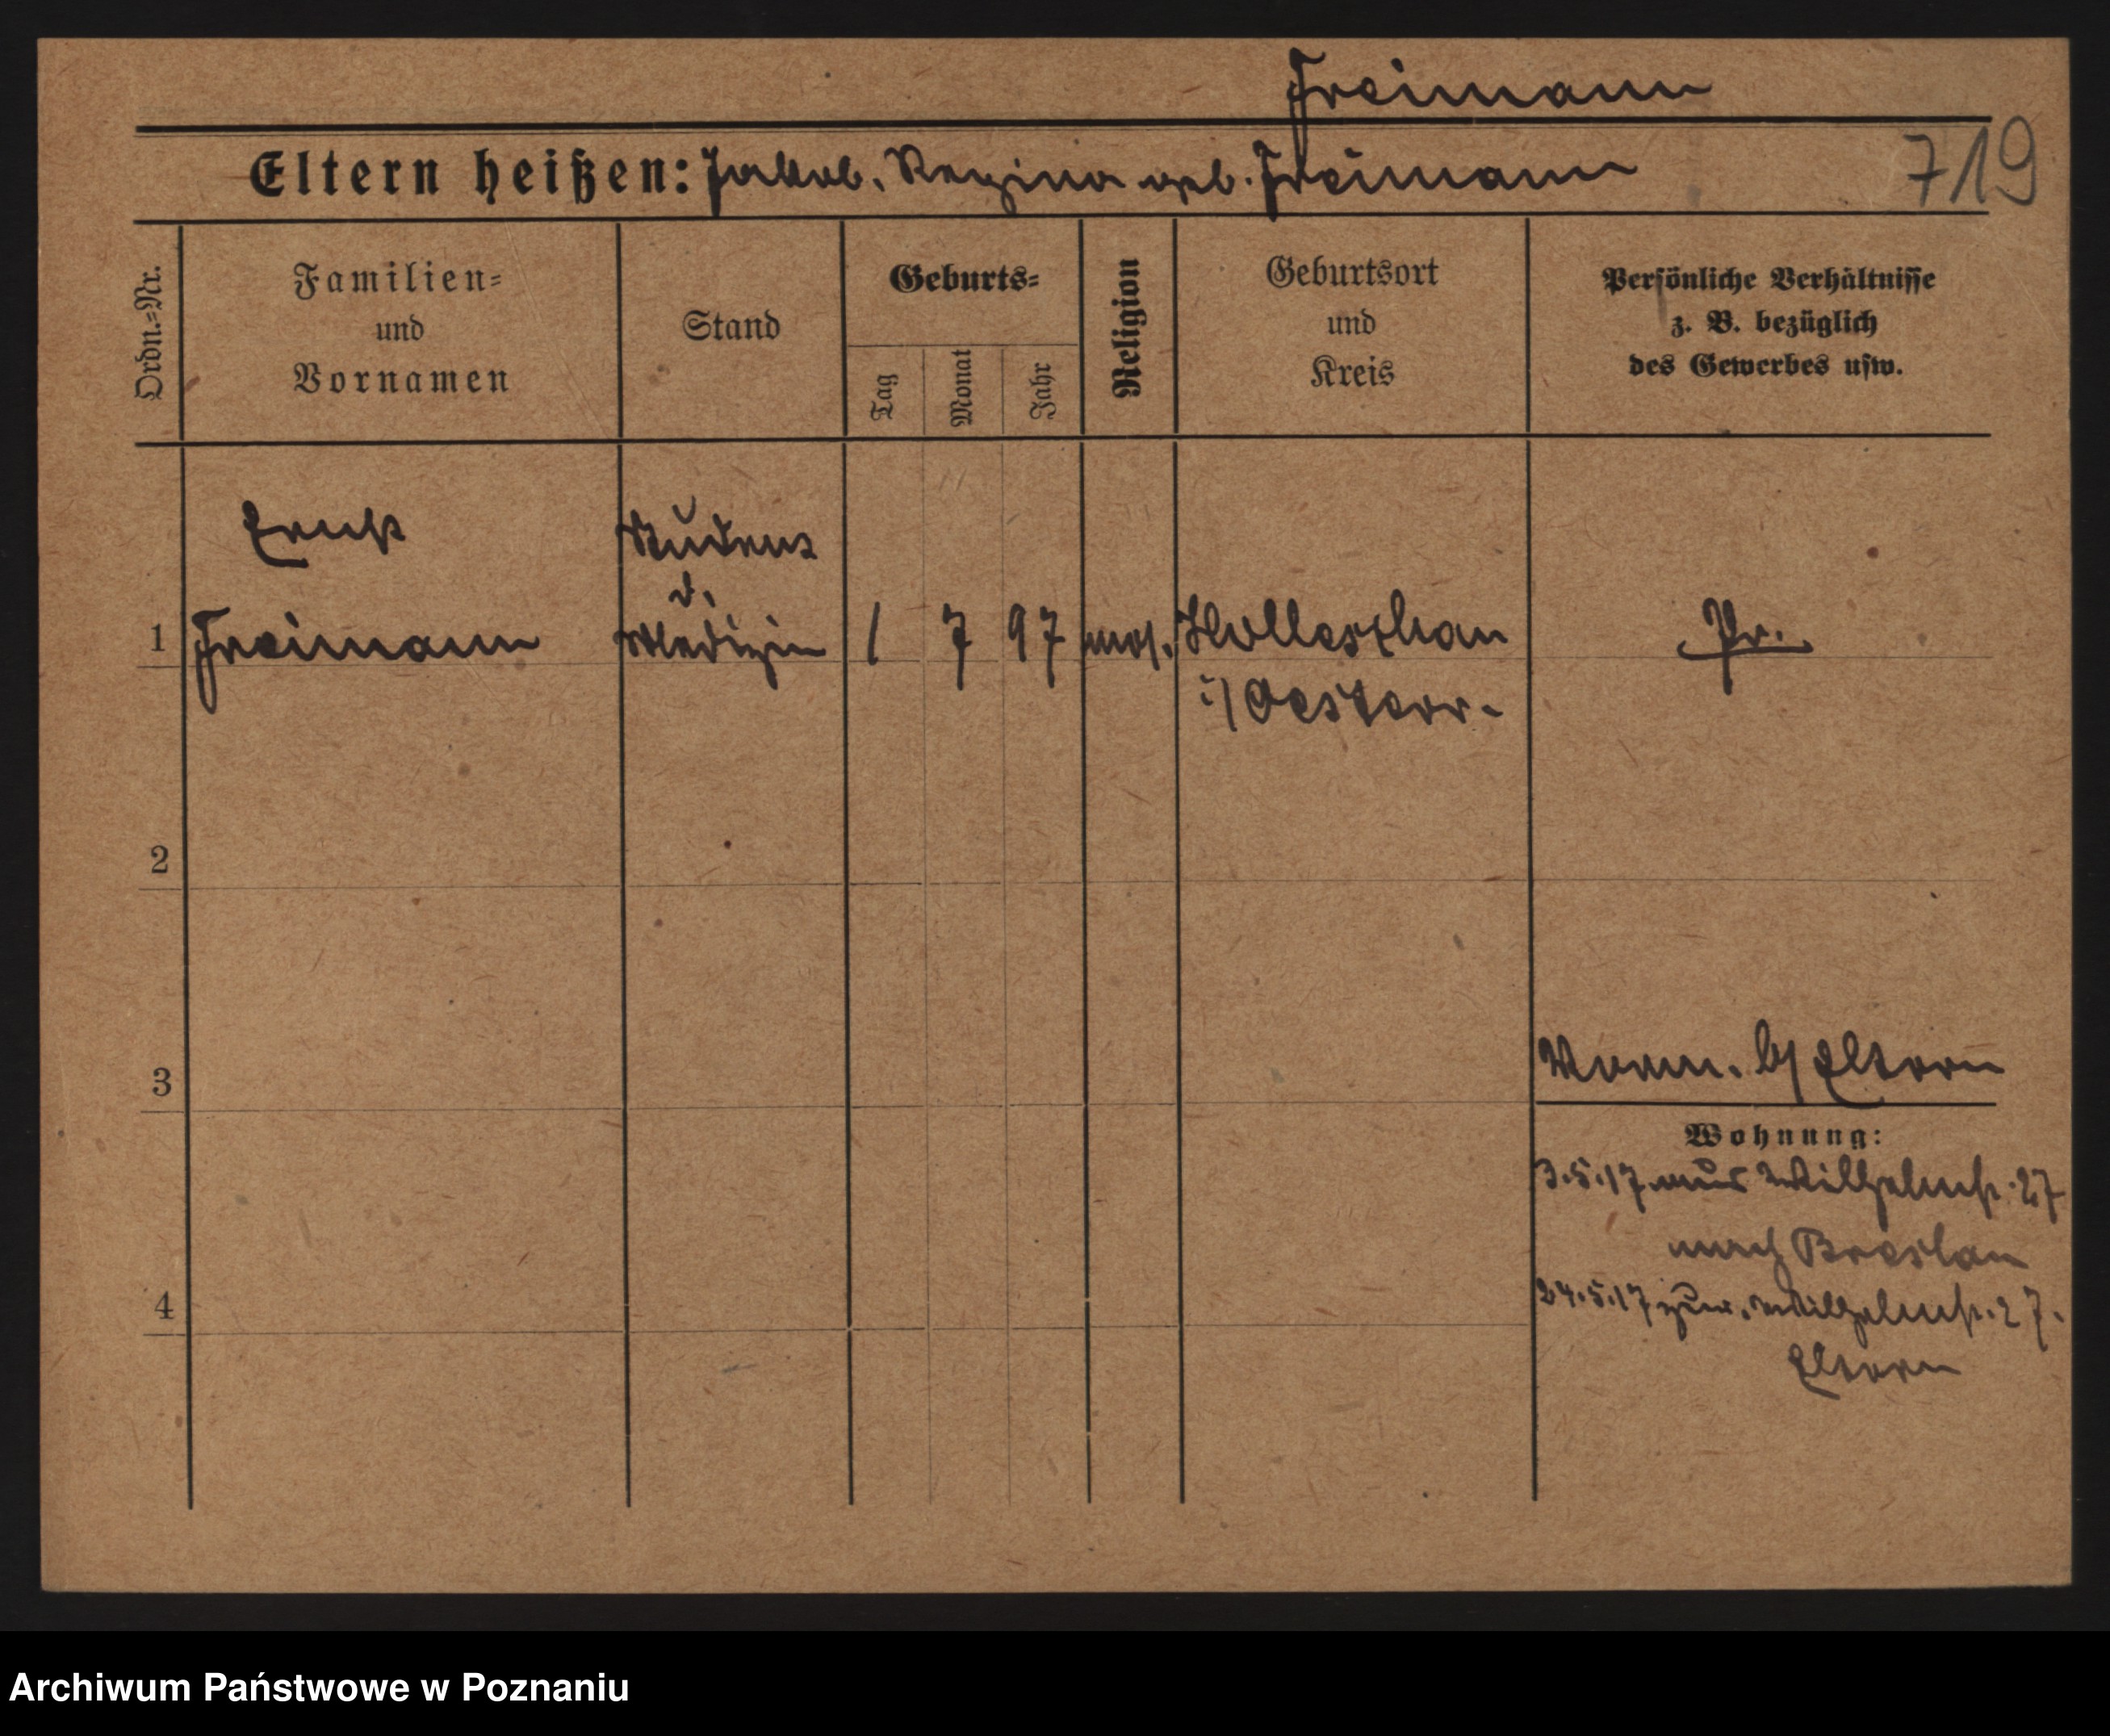 Freimann
Eltern heißen: Jakob, Regina geb. Freimann
719
Ordn.-Nr.
Familien-
und
Vornamen
Stand
Geburts-
Tag
Monat
Jahr
Religion
Geburtsort
und
Kreis
Persönliche Verhältnisse
z. B. bezüglich
des Gewerbes usw.
Ernst
Student
d.
1 Freimann Medizin 1 7 97 mos. Holleschau Pr.
i/ Oesterr.
2
3
b/ Eltern
Wohnung:
3.5.17 aus Wilhelmstr. 27
nach Breslau
4
24.5.17 zur. Wilhelmstr. 27.
Eltern
Archiwum Państwowe w Poznaniu